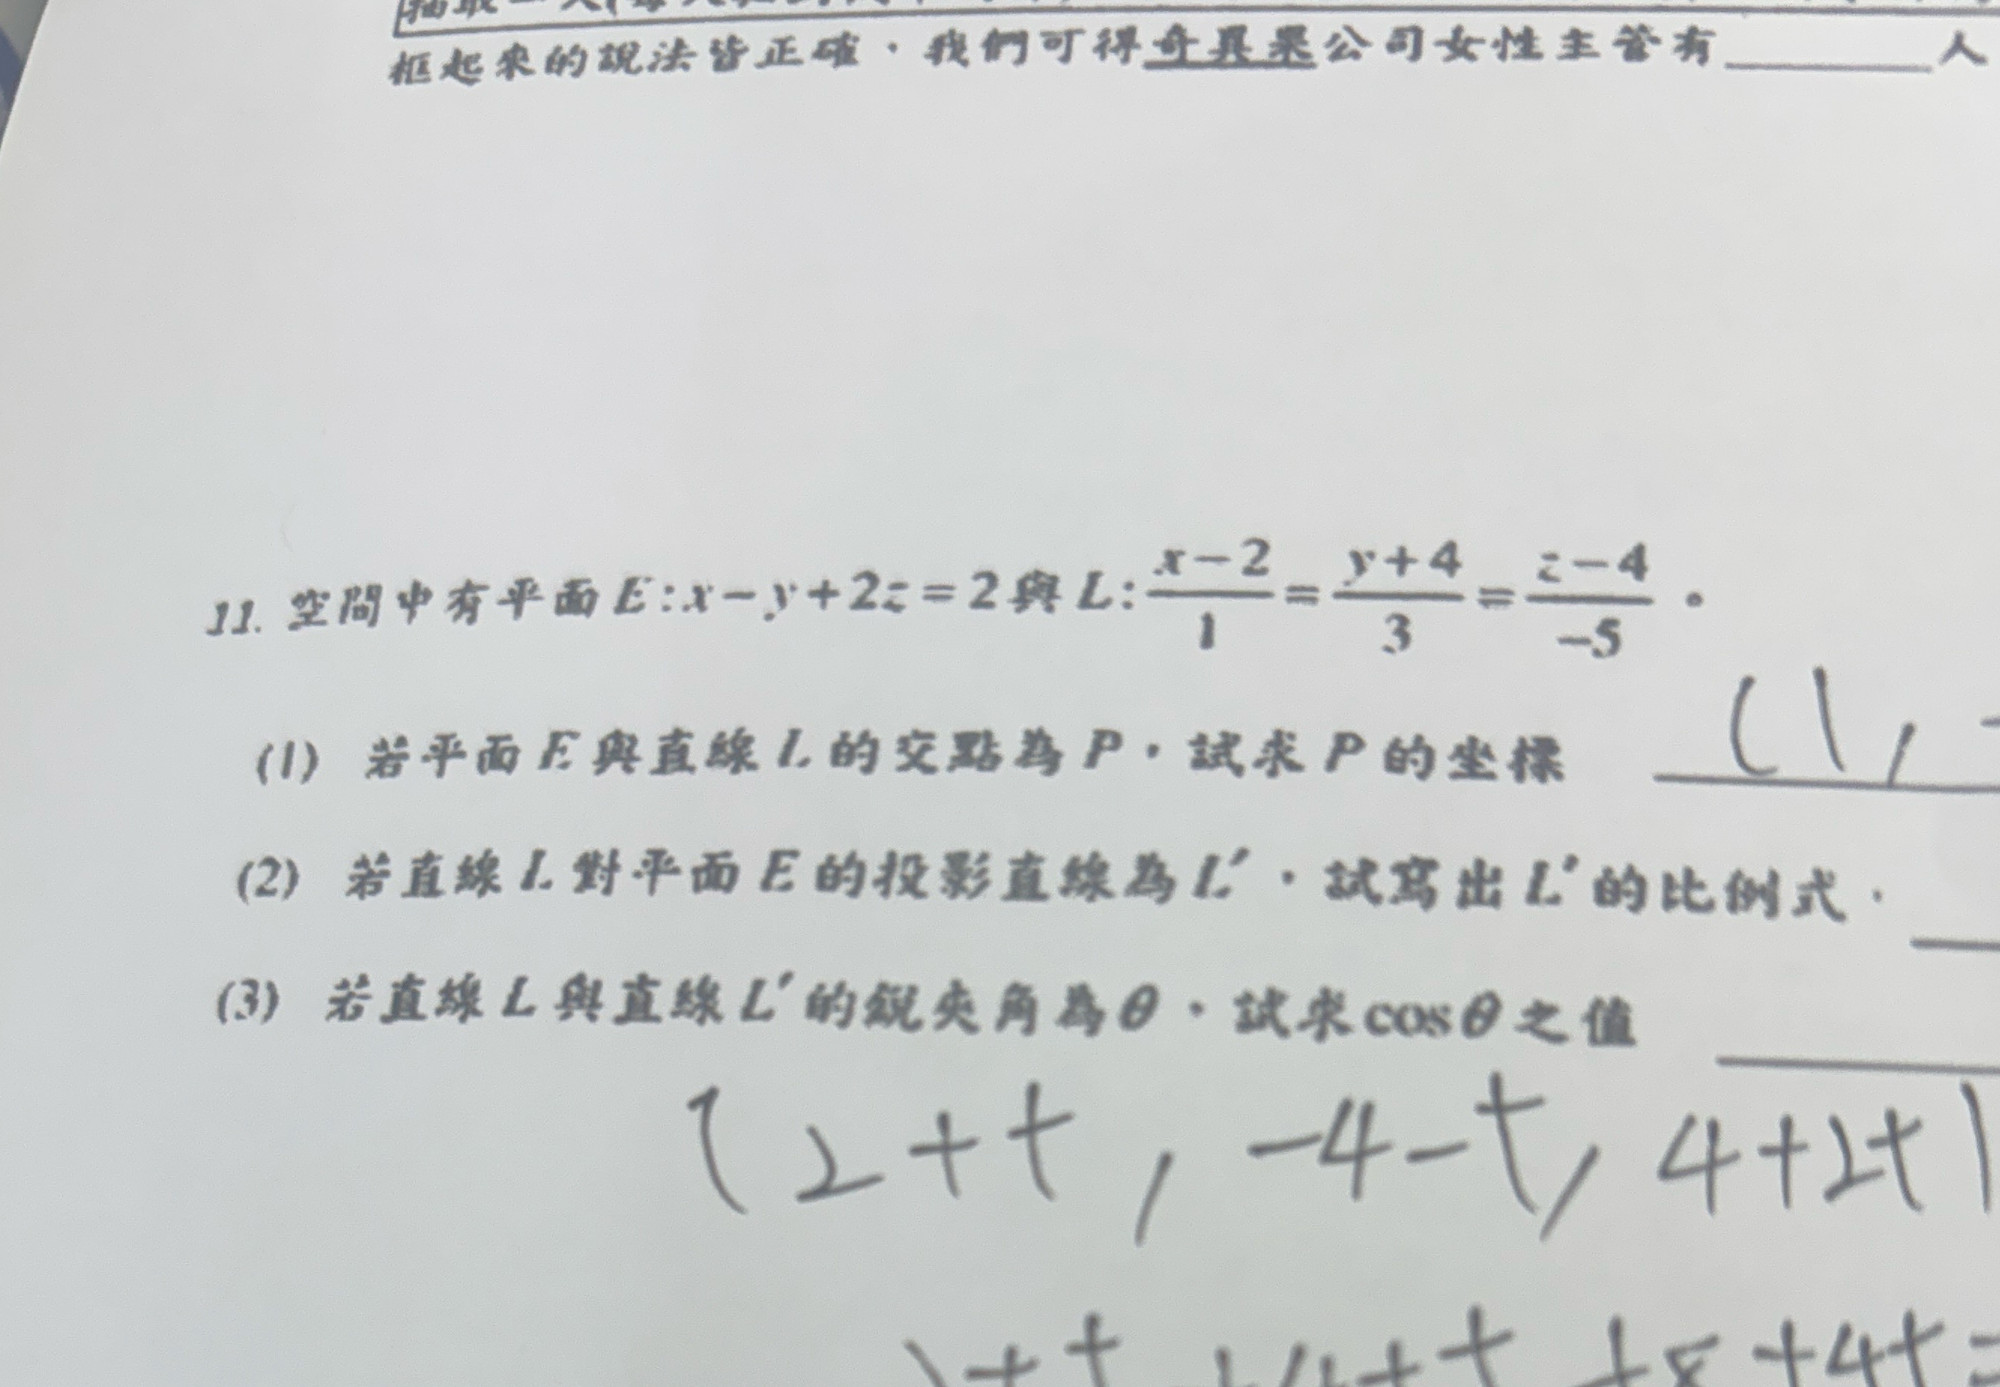 框起來的說法皆正確，我們可得奇異果公司女性主管有______人
11. 空間中有平面E:x-y+2z=2與L:\frac{x-2}{1}=\frac{y+4}{3}=\frac{z-4}{-5}。
(1) 若平面E與直線L的交點為P，試求P的坐標 (1,
(2) 若直線L對平面E的投影直線為L′，試寫出L′的比例式．
(3) 若直線L與直線L′的銳夾角為θ，試求cosθ之值
(2+t, -4-t, 4+2t)
+8+4t=